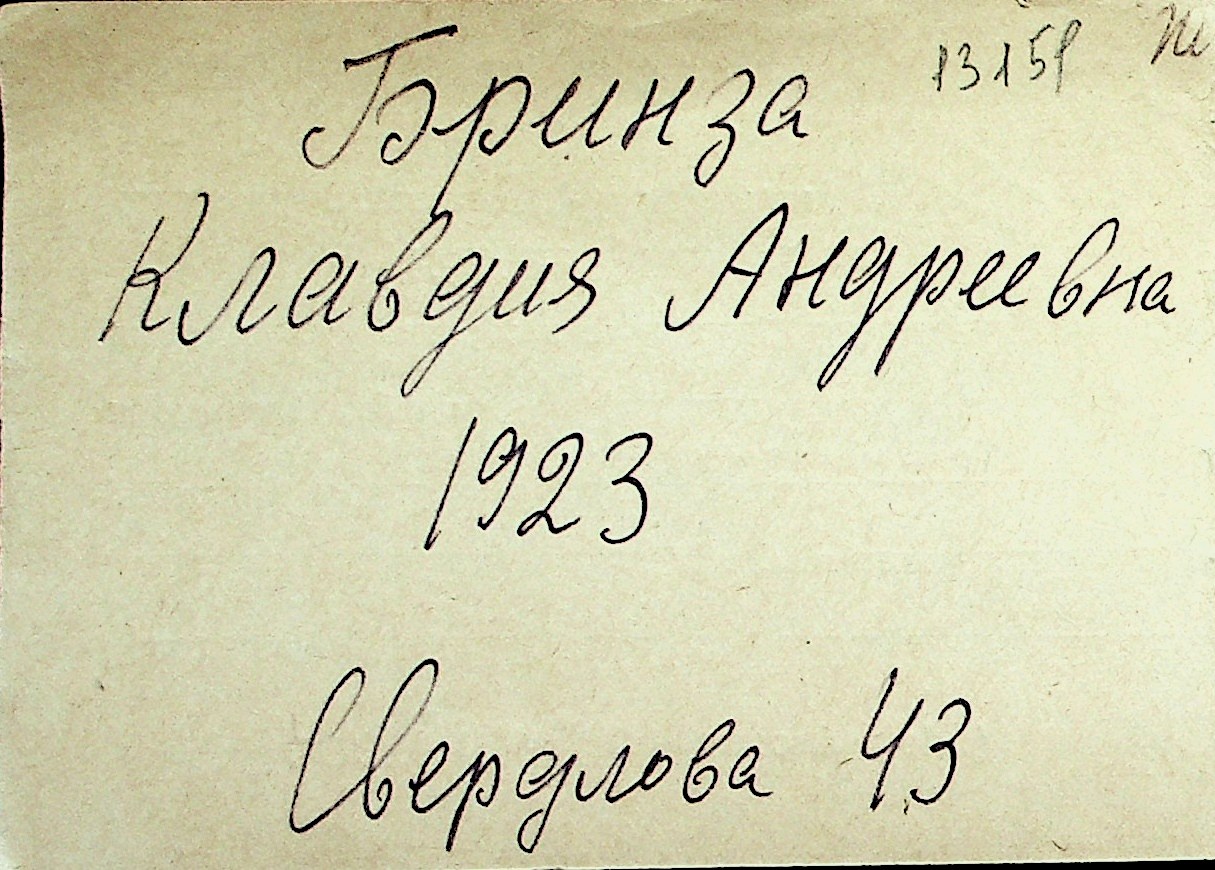 13159
Бринза
Клавдия Андреевна
1923
Свердлова 43